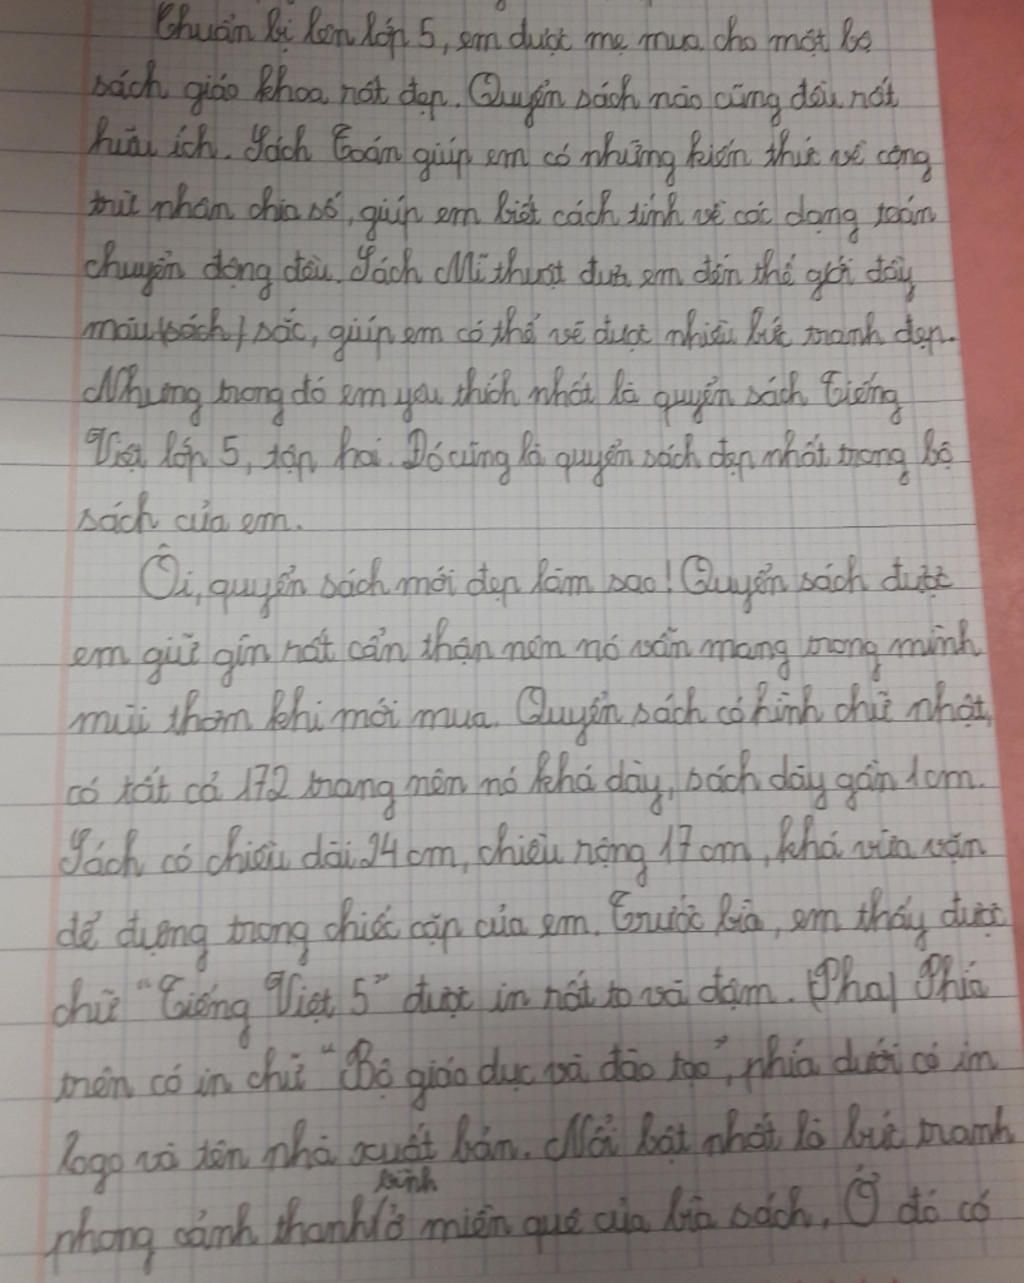 Chuẩn bị lên lớp 5, em được mẹ mua cho một bộ
sách giáo khoa rất đẹp. Quyển sách nào cũng đều rất
hữu ích. Sách Toán giúp em có những kiến thức về cộng
trừ nhân chia số, giúp em biết cách tính về các dạng toán
chuyển động đều. Sách Mĩ thuật đưa em đến thế giới đầy
màu (sách) sắc, giúp em có thể vẽ được nhiều bức tranh đẹp.
Nhưng trong đó em yêu thích nhất là quyển sách Tiếng
Việt lớp 5, tập hai. Đó cũng là quyển sách đẹp nhất trong bộ
sách của em.
Ôi, quyển sách mới đẹp làm sao! Quyển sách được
em giữ gìn rất cẩn thận nên nó vẫn mang trong mình
mùi thơm khi mới mua. Quyển sách có hình chữ nhật,
có tất cả 172 trang nên nó khá dày, sách dày gần 1cm.
Sách có chiều dài 24cm, chiều rộng 17cm, khá vừa vặn
để đựng trong chiếc cặp của em. Trước bìa, em thấy được
chữ "Tiếng Việt 5" được in rất to và đậm. (Pha) Phía
trên có in chữ "Bộ giáo dục và đào tạo", phía dưới có in
logo và tên nhà xuất bản. Nổi bật nhất là bức tranh
phong cảnh thanh bình ở miền quê của bìa sách. Ở đó có